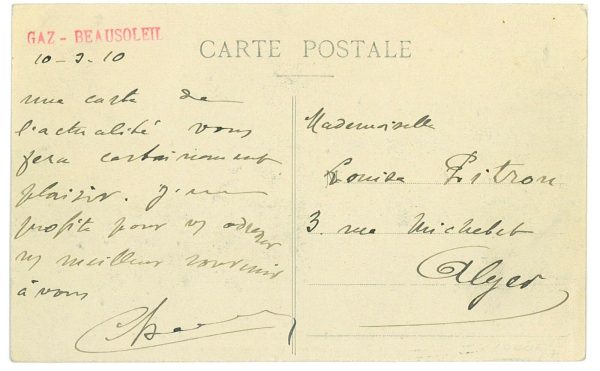 GAZ - BEAUSOLEIL
CARTE POSTALE
10-3-10
une carte de
l'actualité vous
fera certainement
plaisir. J'en
profite pour vs adresser
vs meilleur souvenir
à vous
Mademoiselle
Louisa Pitron
3. rue Michelet
Alger